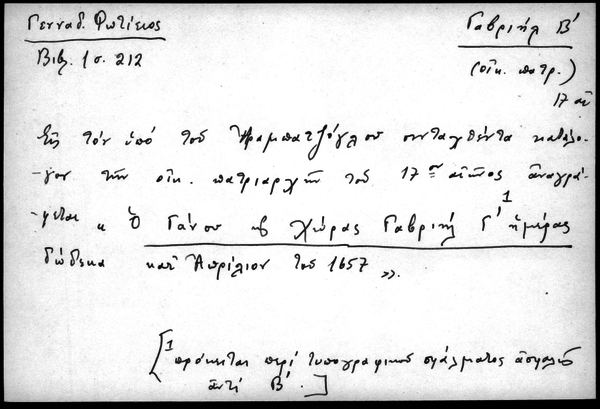 Γενναδ. Φωτίειος
Βιβλ. 1 σ. 212
Γαβριήλ Β΄
(οἰκ. πατρ.)
17 αἰ
Εἰς τόν ὑπό τοῦ Ἀραμπατζόγλου συνταχθέντα κατάλο-
-γον τῶν οἰκ. πατριαρχῶν τοῦ 17ου αἰῶνος ἀναγρά-
-φεται « Ὁ Γάνου καί Χώρας Γαβριήλ Γ΄ 1 ἡμέρας
δώδεκα κατ' Ἀπρίλιον τοῦ 1657 ».
[1 πρόκειται περί τυπογραφικοῦ σφάλματος ἀσφαλῶς
ἀντί Β΄.]